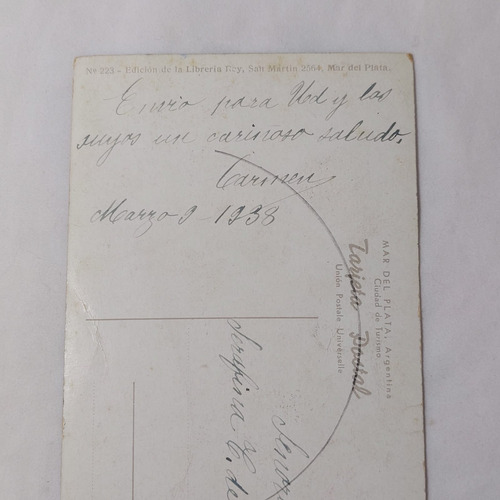 Nº 223 - Edición de la Librería Rey, San Martín 2564, Mar del Plata.
Envío para Ud y los
suyos un cariñoso saludo,
Carmen
Marzo 9 - 1938
MAR DEL PLATA; Argentina
Ciudad de Turismo.
Tarjeta Postal
Unión Postale Universelle
Serafina C. de